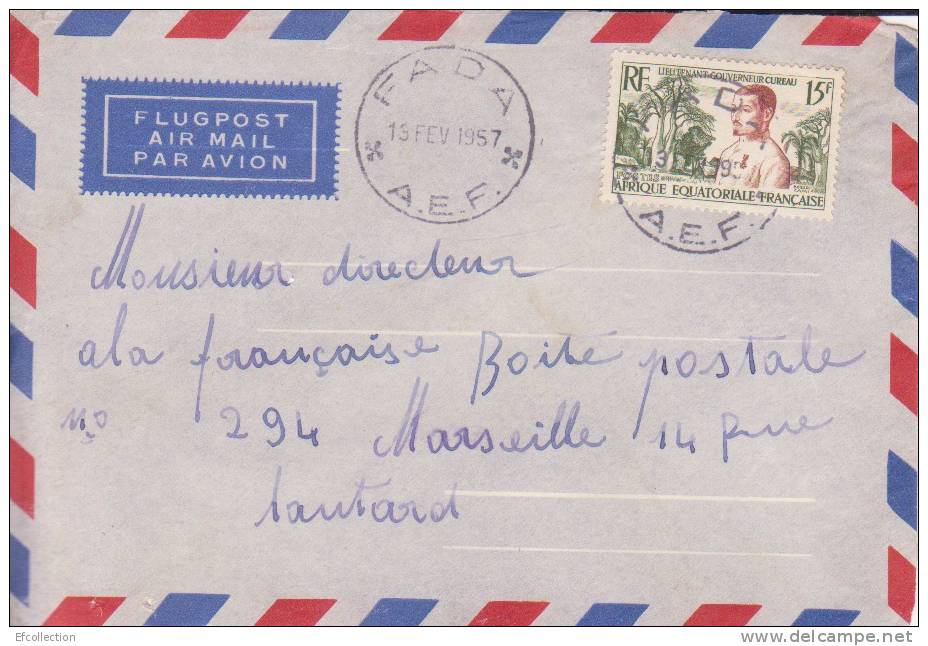 FLUGPOST
AIR MAIL
PAR AVION
FADA
13 FEV 1957
A.E.F.
RF LIEUTENANT-GOUVERNEUR CUREAU 15F
POSTES
AFRIQUE EQUATORIALE FRANÇAISE
A.E.F.
Monsieur directeur
ala française Boite postale
No 294 Marseille 14 Rue
lautard
Efcollection
www.delcampe.net